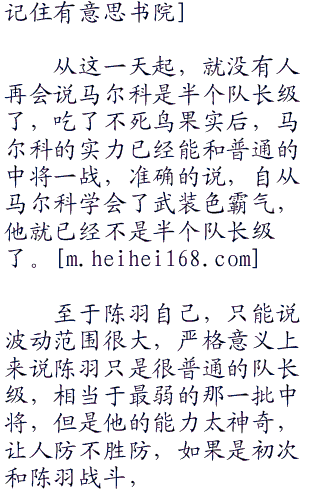 记住有意思书院]
从这一天起，就没有人
再会说马尔科是半个队长级
了，吃了不死鸟果实后，马
尔科的实力已经能和普通的
中将一战，准确的说，自从
马尔科学会了武装色霸气，
他就已经不是半个队长级
了。[m.heihei168.com]
至于陈羽自己，只能说
波动范围很大，严格意义上
来说陈羽只是很普通的队长
级，相当于最弱的那一批中
将，但是他的能力太神奇，
让人防不胜防，如果是初次
和陈羽战斗，